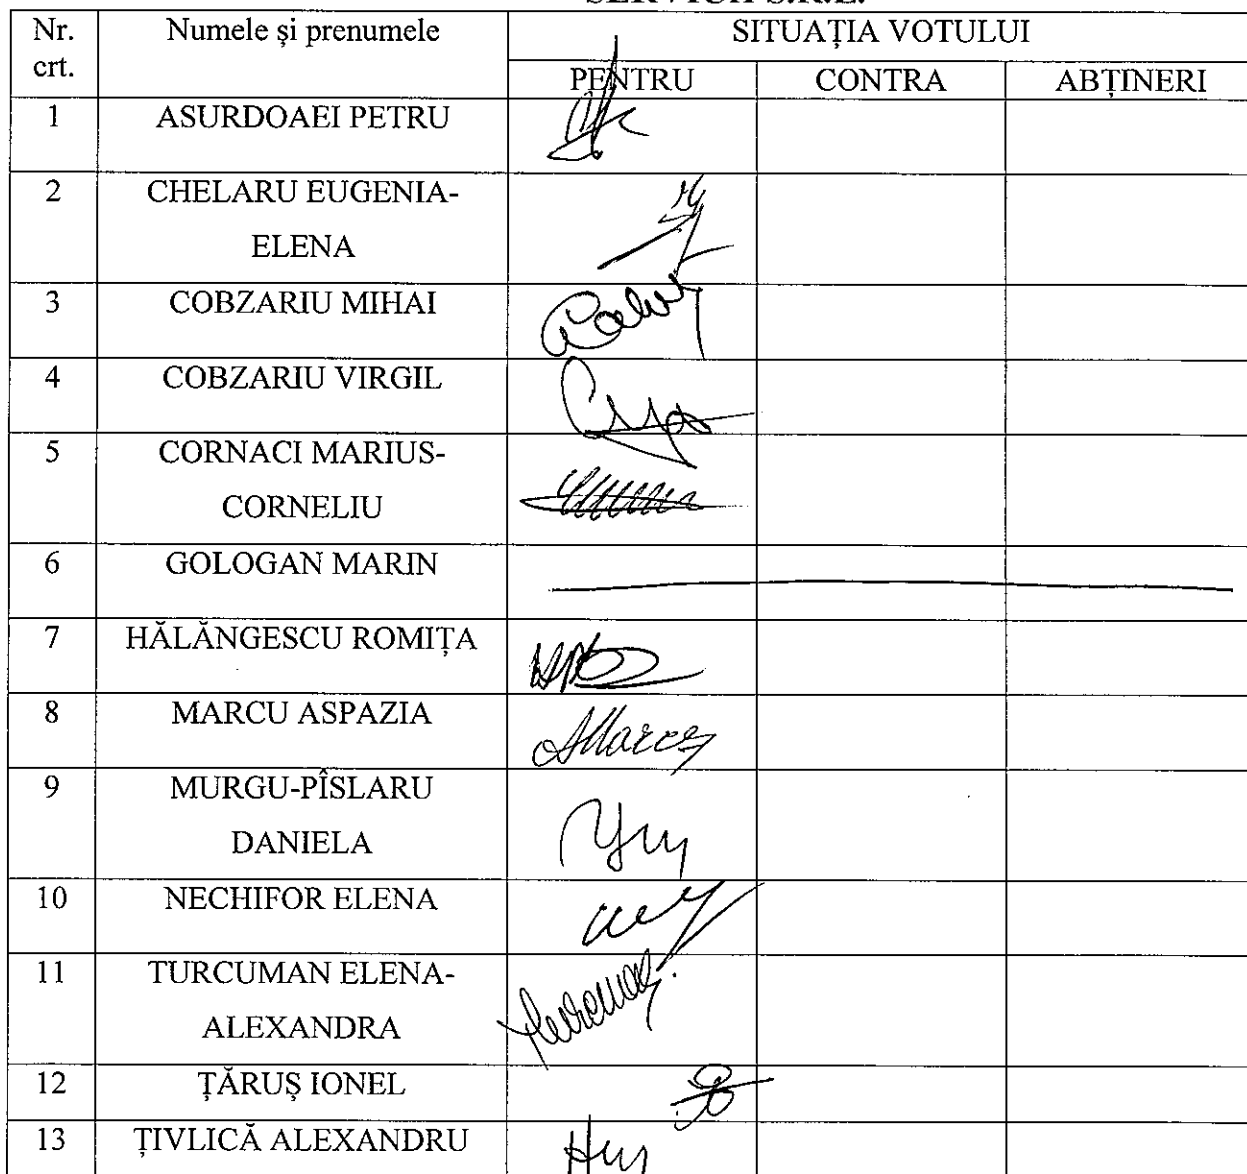 SERVICII S.R.L.
Nr. crt. Numele și prenumele SITUAȚIA VOTULUI
PENTRU CONTRA ABȚINERI
1 ASURDOAEI PETRU
2 CHELARU EUGENIA-
ELENA
3 COBZARIU MIHAI
4 COBZARIU VIRGIL
5 CORNACI MARIUS-
CORNELIU
6 GOLOGAN MARIN
7 HĂLĂNGESCU ROMIȚA
8 MARCU ASPAZIA
9 MURGU-PÎSLARU
DANIELA
10 NECHIFOR ELENA
11 TURCUMAN ELENA-
ALEXANDRA
12 ȚĂRUȘ IONEL
13 ȚIVLICĂ ALEXANDRU